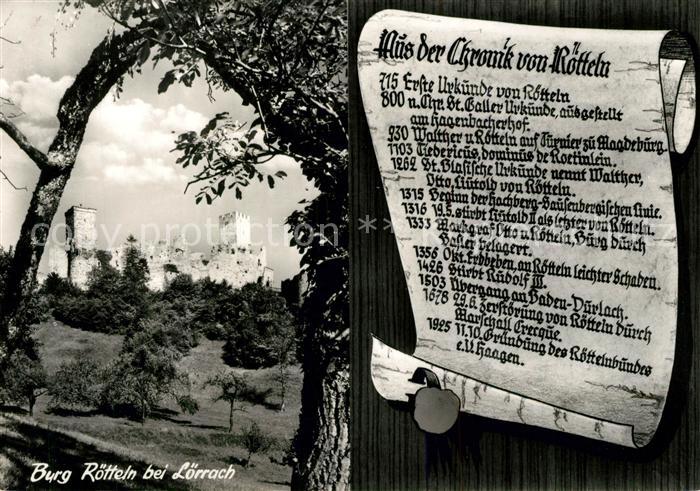 Aus der Chronik von Rötteln
715 Erste Urkunde von Rötteln
800 n. Chr. St. Galler Urkunde, ausgestellt
am Hagenbacherhof.
930 Walther v. Rötteln auf Turnier zu Magdeburg.
1103 Tiedericus, dominus de Roetinlein.
1262 St. Blasische Urkunde nennt Walther,
Otto, Lütold von Rötteln.
1315 Beginn der Hachberg-Sausenbergischen Linie.
1316 19.5. stirbt Lütold II als letzter von Rötteln.
1333 Markgraf Otto v. Rötteln, Burg durch
Basler belagert.
1356 Okt. Erdbeben, an Rötteln leichter Schaden.
1428 Stirbt Rudolf III.
1503 Übergang an Baden-Durlach.
1678 29.6. Zerstörung von Rötteln durch
Marschall Crecque.
1925 11.10. Gründung des Röttelnbundes
e.V. Haagen.
Burg Rötteln bei Lörrach